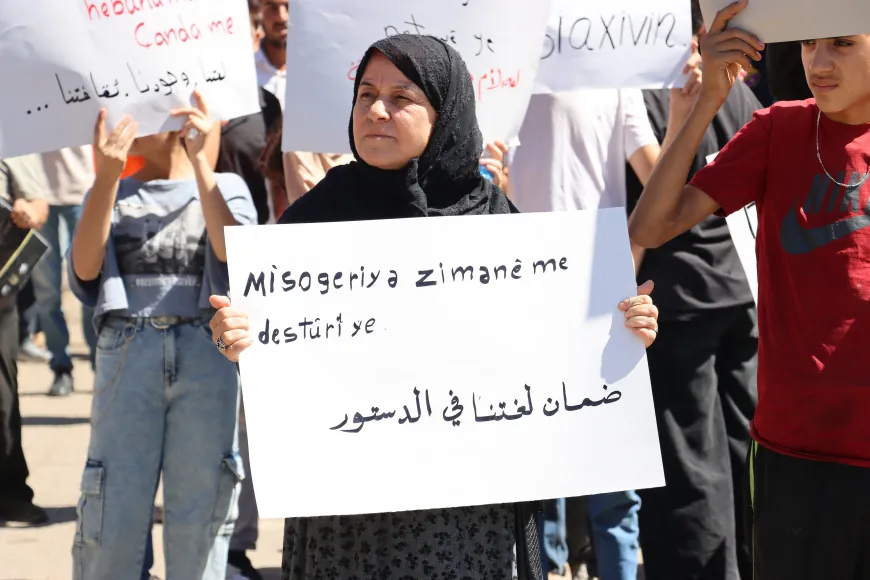 hebûna
Canda me
لغتنا. وجودنا. ثقافتنا ...
ye
slaxivin.
Misogeriya zimanê me
destûrî ye.
ضمان لغتنا في الدستور